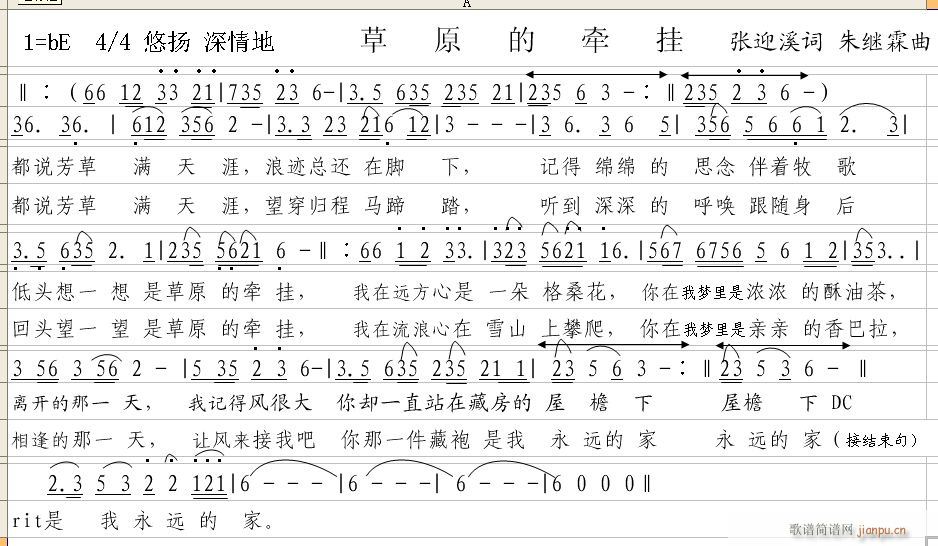 A
1=bE 4/4 悠扬 深情地 草 原 的 牵 挂 张迎溪词 朱继霖曲
‖:(66 12 33 21|735 23 6-|3.5 635 235 21|235 6 3 -:‖235 2 3 6 -)
36. 36.| 612 356 2 -|3.3 23 216 12|3 - - -|3 6. 3 6 5| 356 5 6 6 1 2. 3|
都说芳草 满 天 涯,浪迹总还 在脚 下, 记得 绵绵 的 思念 伴着牧 歌
都说芳草 满 天 涯,望穿归程 马蹄 踏, 听到 深深 的 呼唤 跟随身 后
3.5 635 2. 1|235 5621 6 -‖:66 1 2 33.|323 5621 16.|567 6756 5 6 1 2|353..|
低头想一 想 是草原 的牵 挂, 我在远方心是 一朵 格桑花, 你在我梦里是浓浓 的酥油茶,
回头望一 望 是草原 的牵 挂, 我在流浪心在 雪山 上攀爬, 你在我梦里是亲亲 的香巴拉,
3 56 3 56 2 -|5 35 2 3 6-|3.5 635 235 21 1| 23 5 6 3 -:‖23 5 3 6 - ‖
离开的那一 天, 我记得风很大 你却一直站在藏房的 屋 檐 下 屋檐 下 DC
相逢的那一 天, 让风来接我吧 你那一件藏袍 是我 永 远的 家 永 远的 家(接结束句)
2.3 5 3 2 2 121|6 - - -|6 - - -| 6 - - -|6 0 0 0‖
rit是 我 永 远 的 家。
歌谱简谱网 jianpu.cn